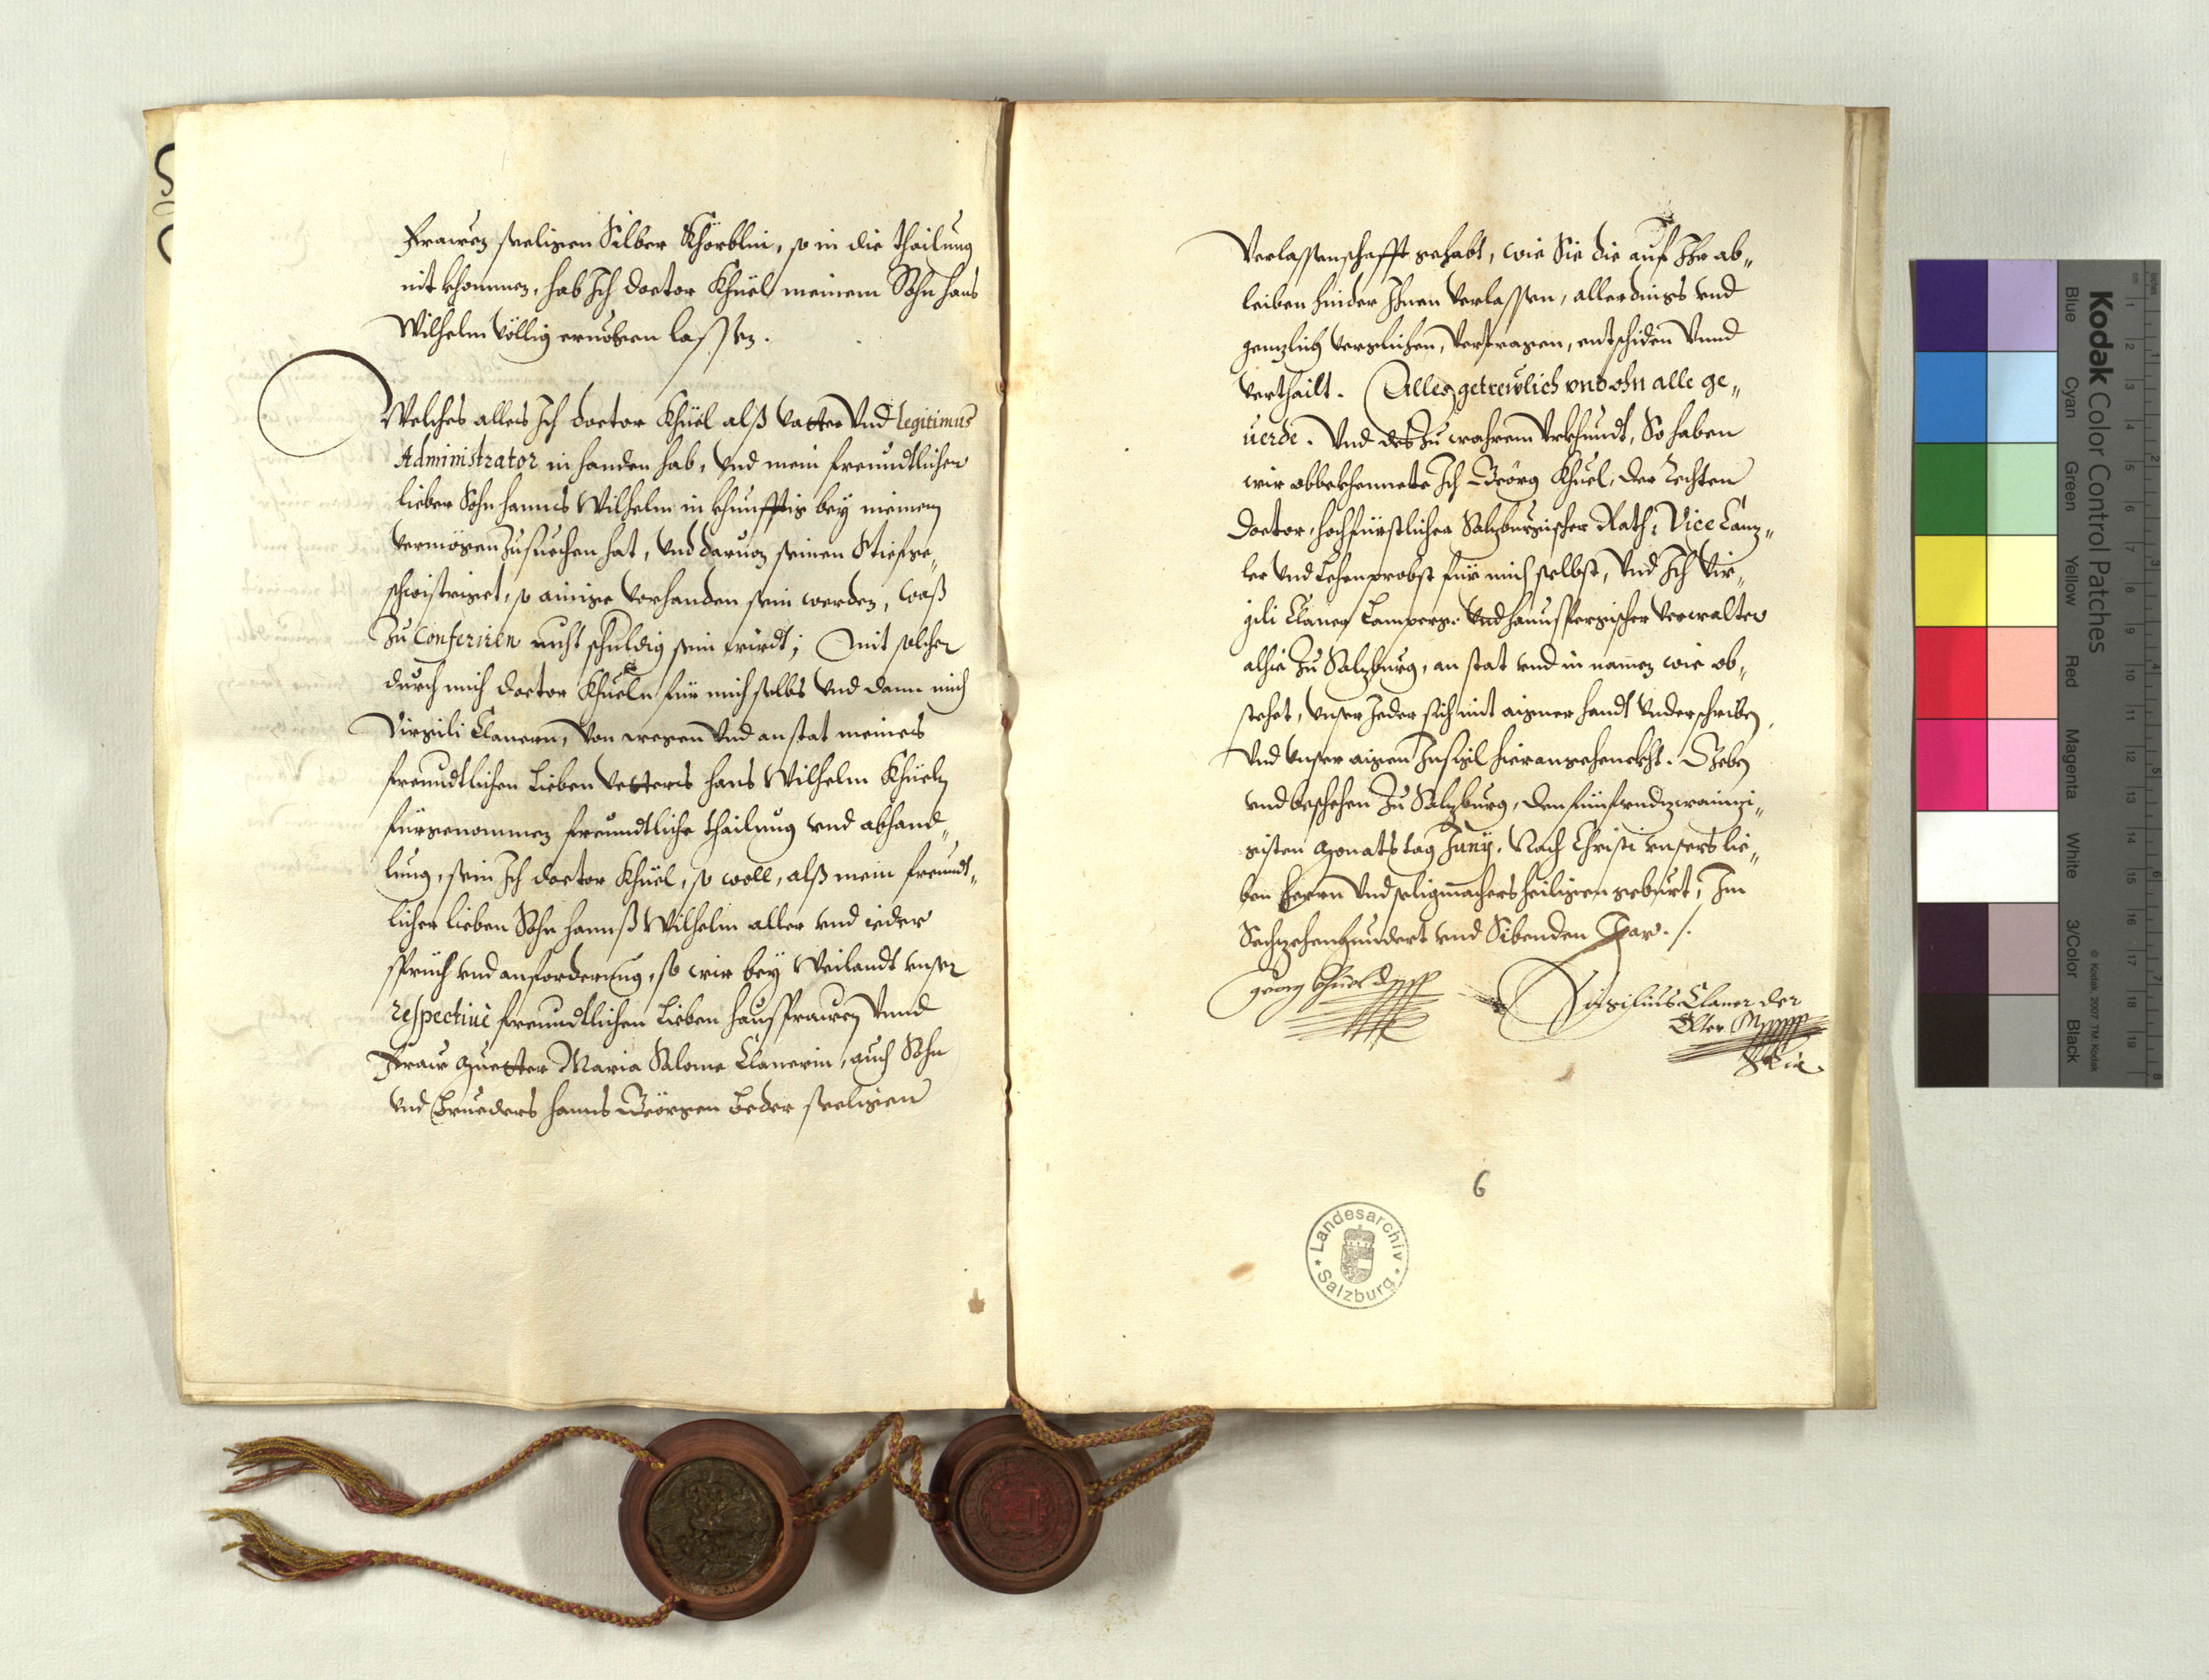 Frawen seeligen Silber Khörblin, so in die thailung
nit khommen, hab Ich doctor Khüel meinem Sohn hans
Wilhelm völlig ervolgen lassen.
Welches alles Ich doctor Khüel alß vatter Vnd Legitimus
Administrator in handen hab, Vnd mein freundtlicher
lieber Sohn hanns Wilhelm in khunfftig bey meinem
vermögen zusuechen hat, Vnd daruon seinen Stiefge„
schwistriget, so ainige vorhanden sein werden, waß
Zu Conferiren nicht schuldig sein wirdt; Mit solcher
durch mich doctor Khüeln für mich selbs Vnd dann mich
Virgili Clanern, Von wegen Vnd anstat meines
freundtlichen Lieben Vetters hans Wilhelm Khüeln
fürgenommen freundtliche thailung vnd abhand„
lung, sein Ich doctor Khüel, so woll, alß mein freundt„
licher lieben Sohn hannß Wilhelm aller vnd ieder
spruch vnd anforderung, so wir bey Weilandt vnser
respectiuè freundtlichen Lieben haussfrawen Vnnd
Fraw Muetter Maria Salome Clanerin, auch Sohn
vnd Brueders hanns Geörgen beder seeligen
Verlassenschafft gehabt, wie Sie die auf Ihr ab„
leiben hinder Ihnen Verlassen, allerdings vnd
genzlich verglichen, Vertragen, entschiden Vnnd
verthailt. Alles getrewlich vnd ohn alle ge„
uerde. Vnd des zu wahrem Vrkhundt, So haben
wir obbekhennete Ich Geörg Khüel, der Rechten
Doctor, hochfürstlicher Salzburgischer Rath, Vice Canz„
ler Vnd Lehenprobst für mich selbst, Vnd Ich Vir„
gili Claner Lamperg. Vnd haunspergischer Verwalter
alhie zu Salzburg, an stat vnd in namen wie ob„
stehet, vnser Jeder sich mit aigner handt Vnderschriben,
Vnd vnser aigen Insigl hieran gehenckht. Geben
vnd beschehen Zu Salzburg, den fünfvndzwainzi„
gisten Monats tag Juny, Nach Christi vnsers lie„
ben Herrn Vnd seligmachers heiligen geburt, Im
Sechzehenhundert vnd Sibenden Jar./.
Georg Khuel D
Virgilius Claner der
Elter
6
Landesarchiv
Salzburg
Kodak Color Control Patches
Blue Cyan Green Yellow Red Magenta White 3/Color Black
© Kodak, 2007 TM: Kodak